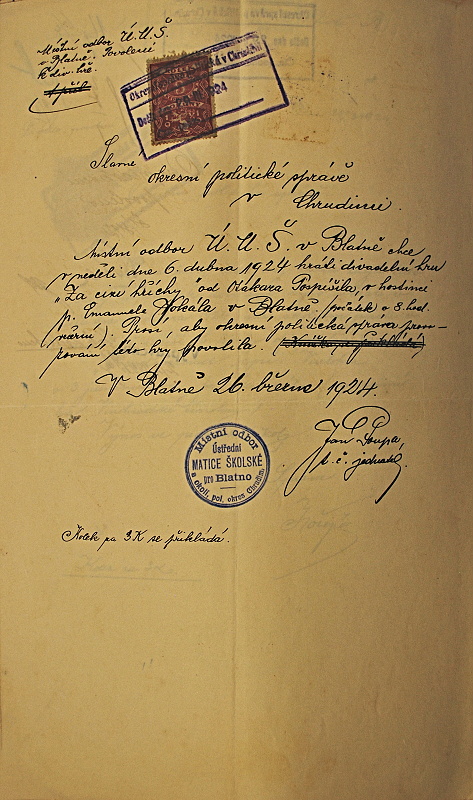 Místní odbor Ú.M.Š.
v Blatně. Povolení
k div. hře.
Okresní správa politická v Chrudimi
Slavné
okresní politické správě
v Chrudimi.
Místní odbor Ú.M.Š. v Blatně chce
v neděli dne 6. dubna 1924 hráti divadelní hru
„Za cizí hříchy" od Otakara Pospíšila, v hostinci
p. Emanuela Vokála v Blatně. (počátek o 8. hod.
večerní). Prosí, aby okresní politická správa provo-
zování této hry povolila.
V Blatně 26. března 1924.
Jan
t. č. jednatel.
Místní odbor
Ústřední
MATICE ŠKOLSKÉ
pro Blatno
a okolí, pol. okres Chrudim.
Kolek po 3 K se přikládá.